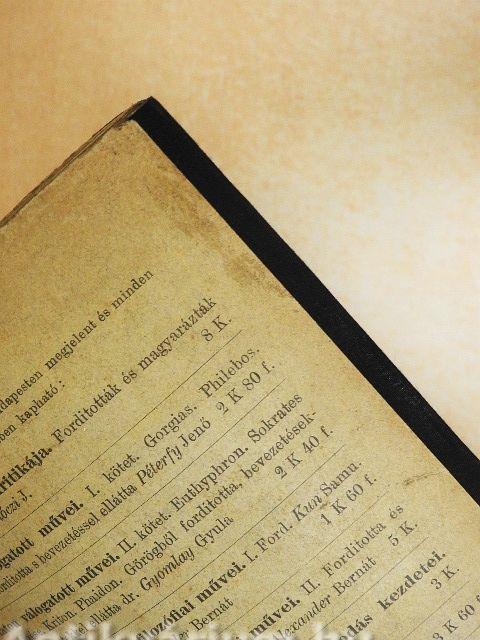 dapesten megjelent és minden
ben kapható:
ritikája. Fordították és magyarázták
óczi J. 8 K.
ogatott művei. I. kötet. Gorgias. Philebos.
ordította s bevezetéssel ellátta Péterfy Jenő 2 K 80 f.
válogatott művei. II. kötet. Euthyphron. Sokrates
Kriton. Phaidon. Görögből fordította, bevezetések-
ellátta dr. Gyomlay Gyula 2 K 40 f.
lozófiai művei. I. Ford. Kun Samu.
1 K 60 f.
művei. II. Fordította és
Alexander Bernát 5 K.
dás kezdetei.
3 K.
K 60 f.